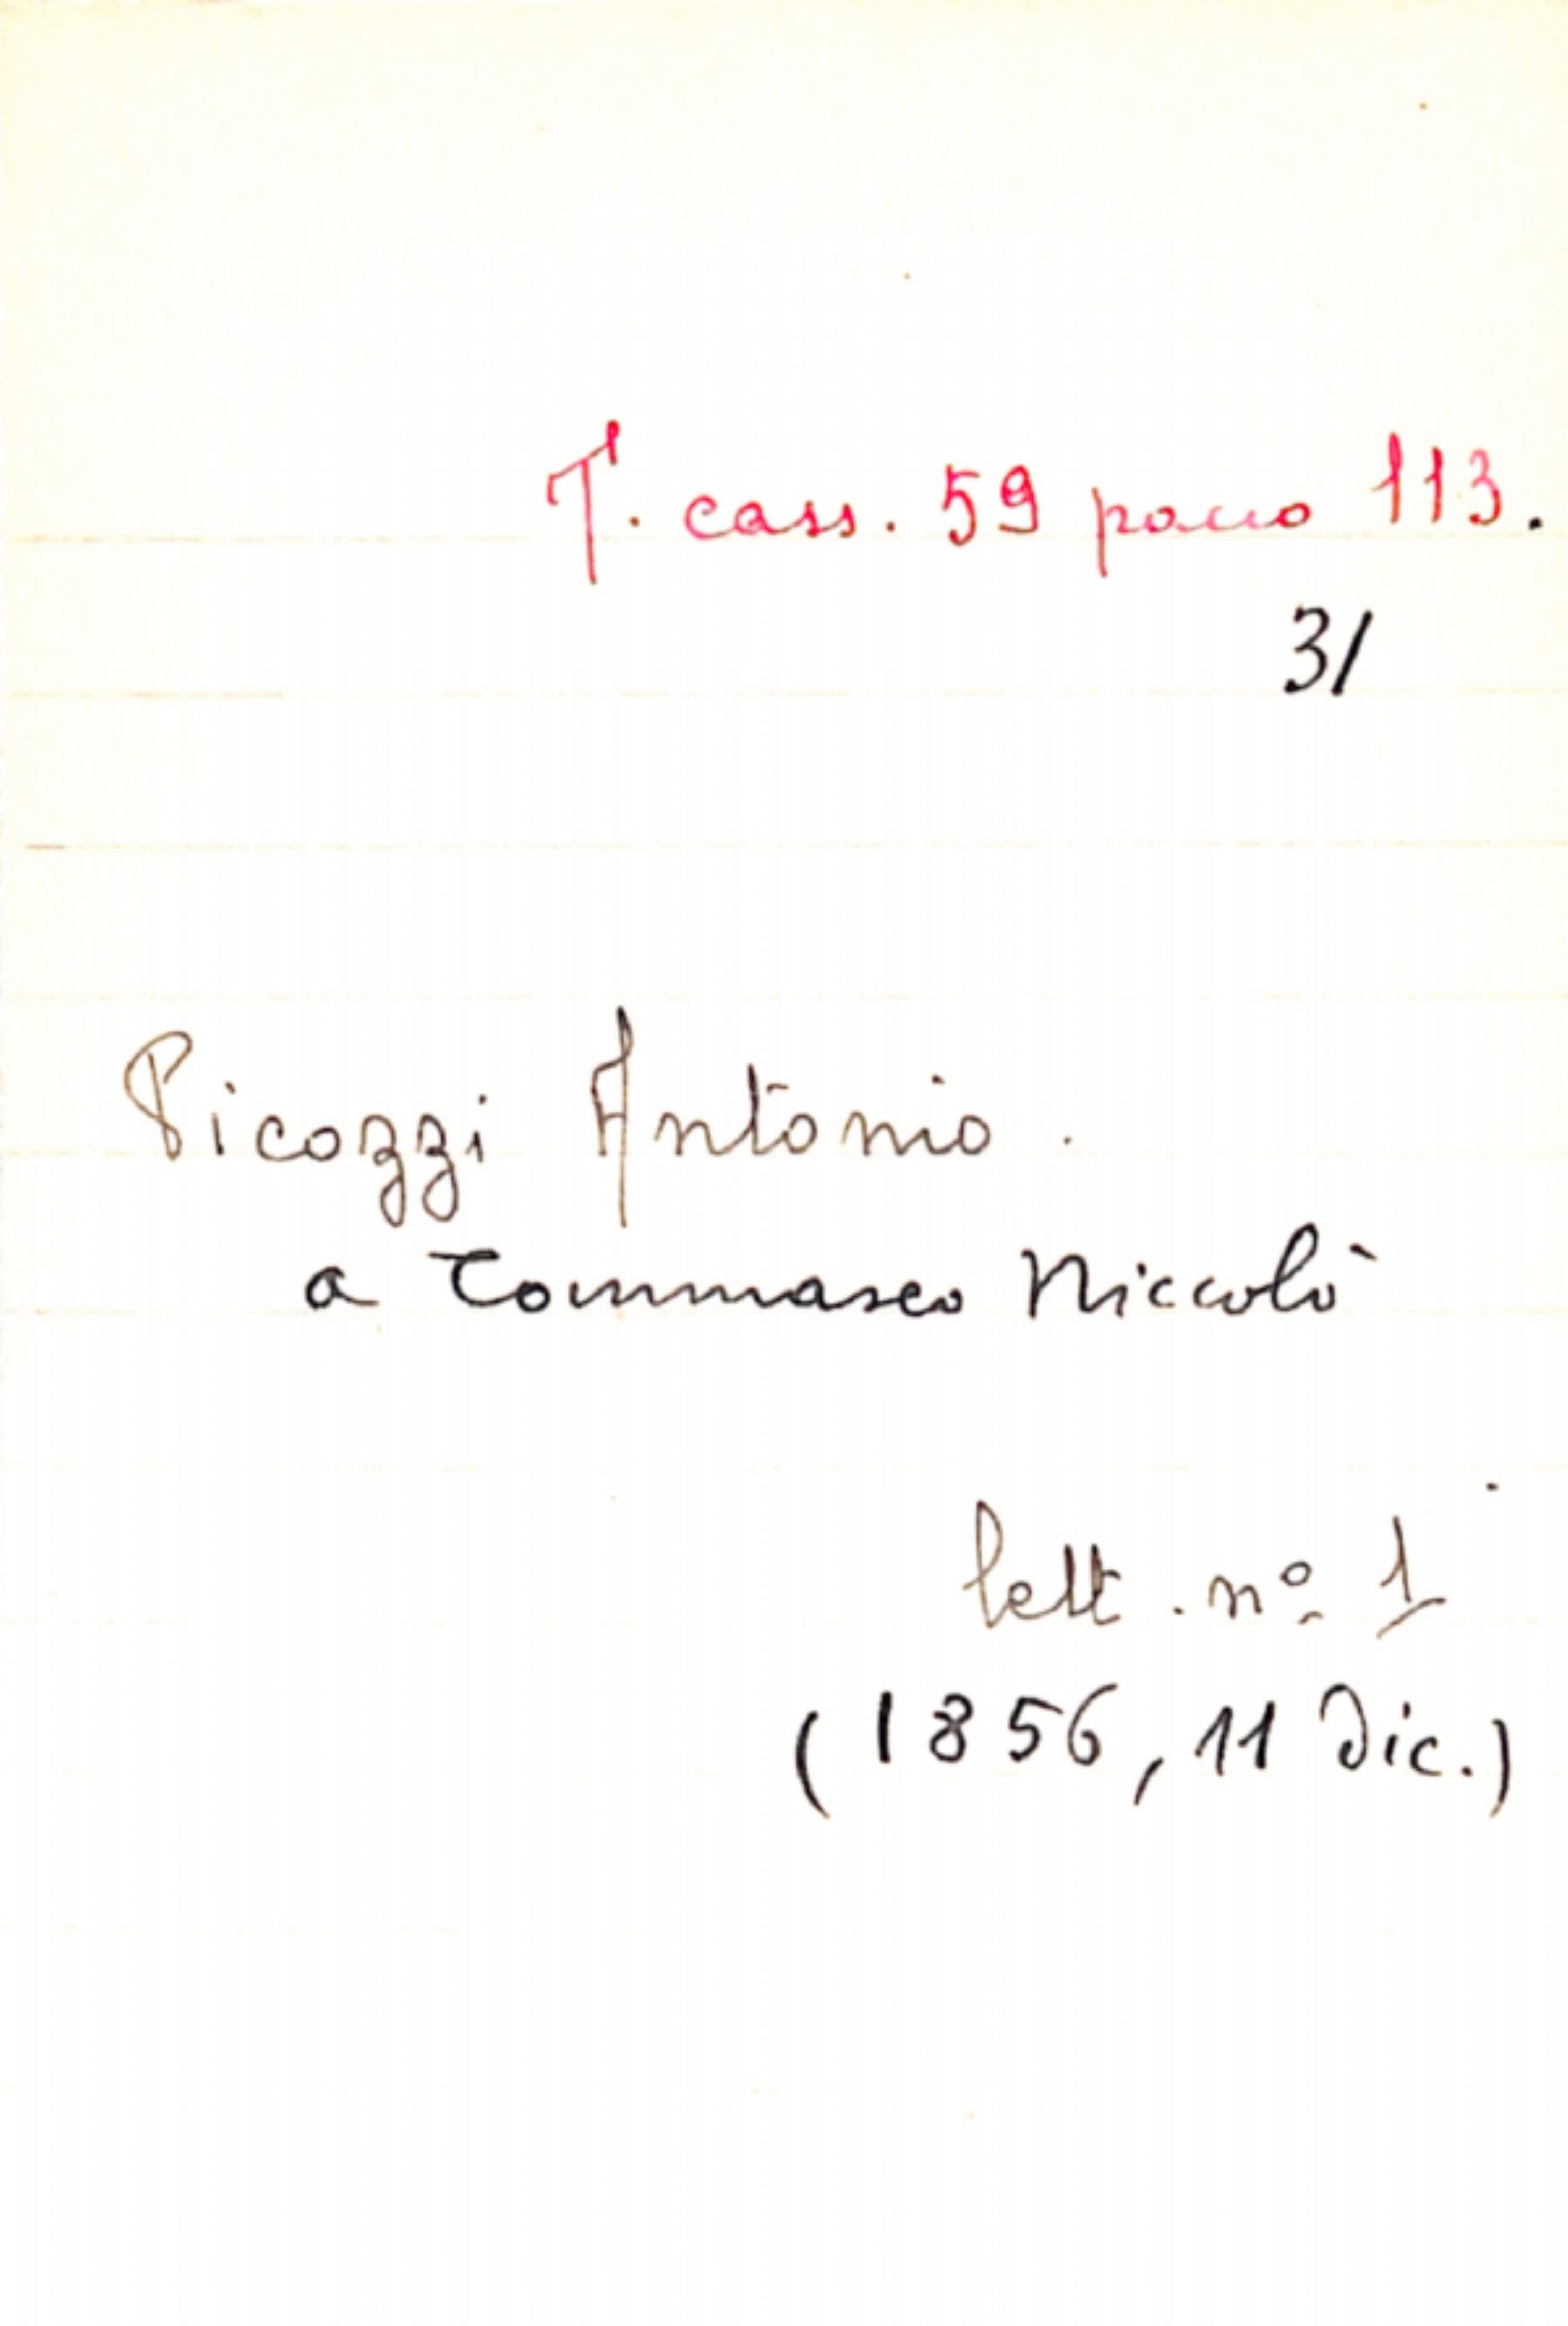 T. cass. 59 pacco 113.
31
Picozzi Antonio.
a Tommaseo Niccolò
lett. nº 1
(1856, 11 Dic.)